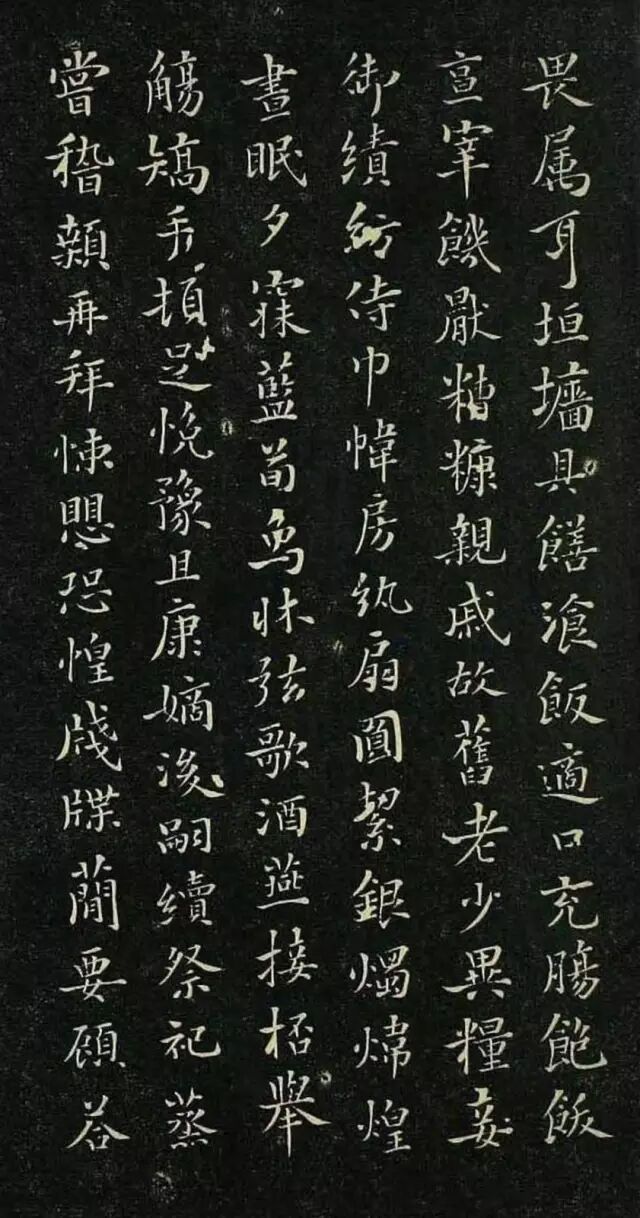 畏属耳垣墻具饍湌飯適口充腸飽飯
亯宰饑厭糟糠親戚故舊老少異糧妾
御績紡侍巾幃房紈扇圓絜銀燭煒煌
晝眠夕寐藍荀象牀弦歌酒燕接杯舉
觴矯手頓足悅豫且康嫡後嗣續祭祀蒸
嘗稽顙再拜悚愳恐惶牋牒蕳要顧荅